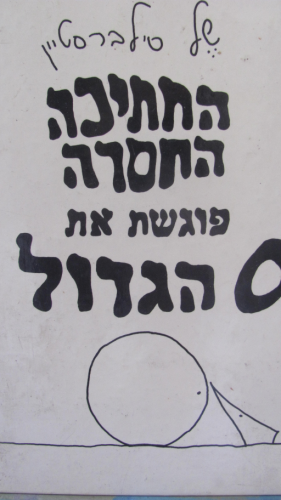 שֶׁל סילברסטיין
החתיכה
החסרה
פוגשת את
O הגדול